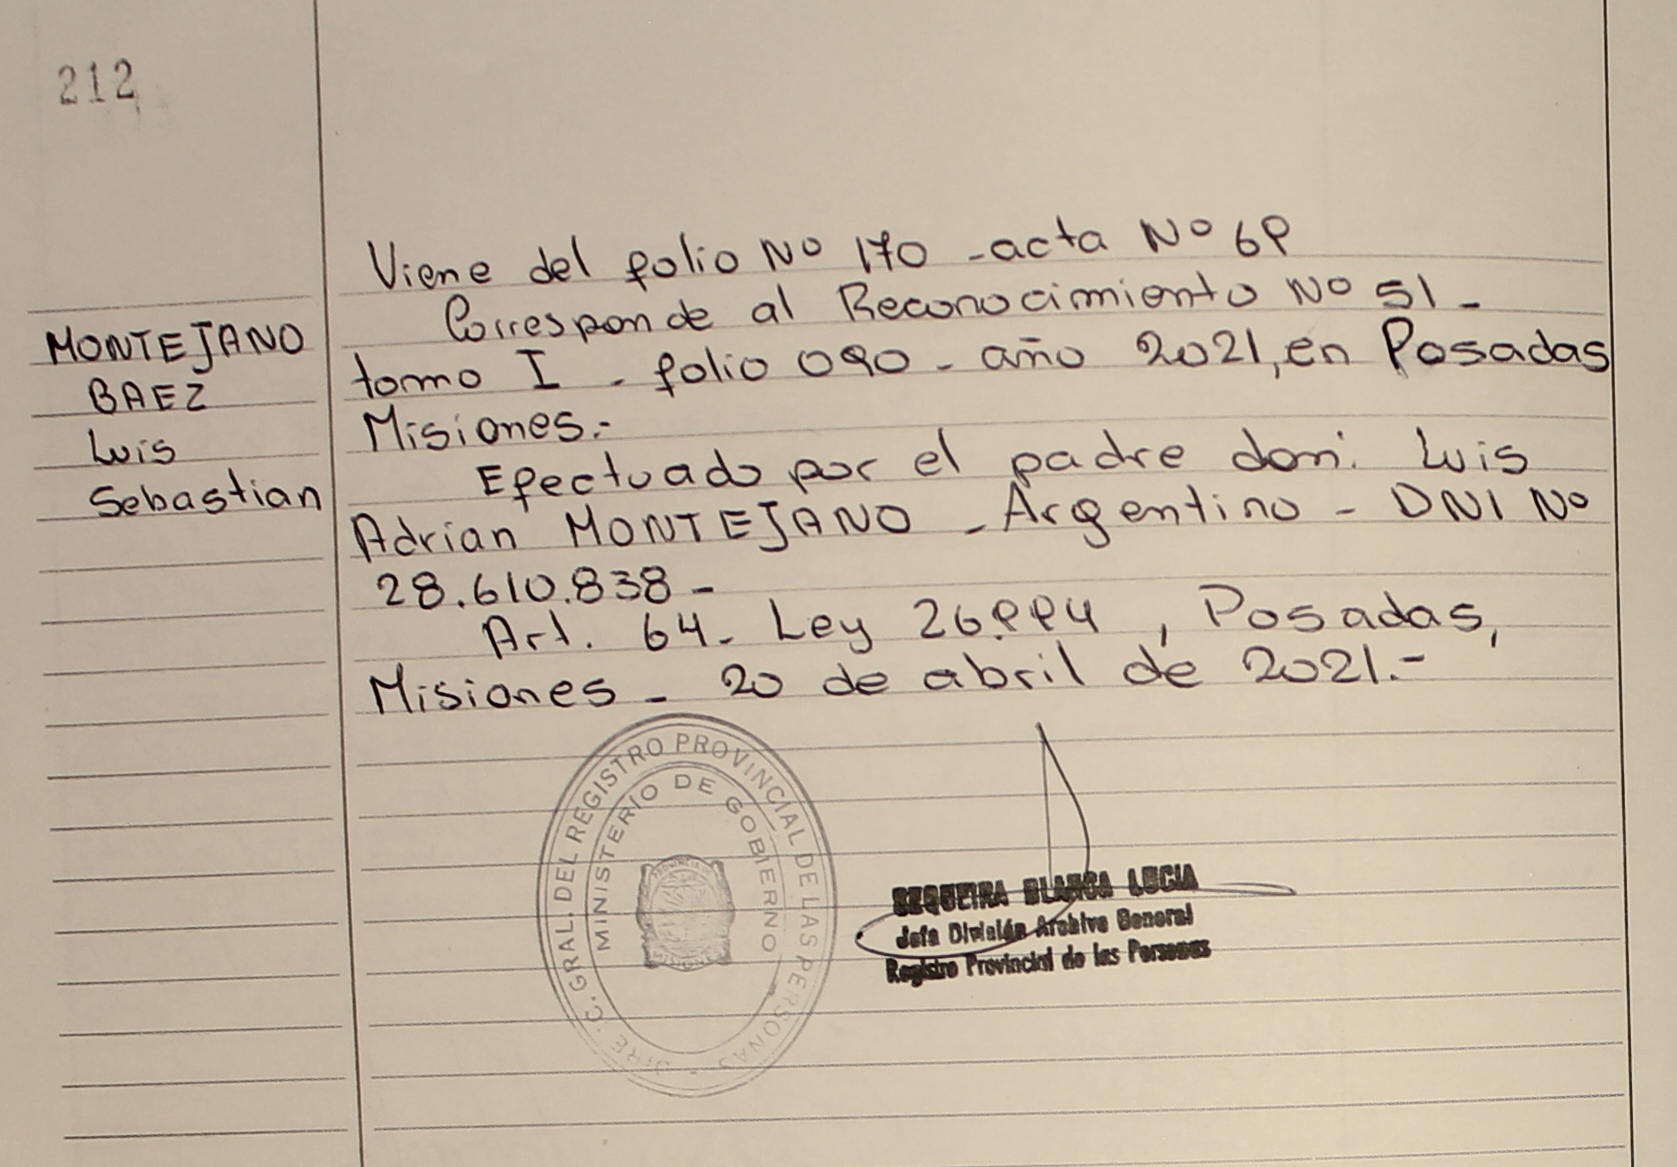 212
Viene del folio Nº 170 - acta Nº 69
Corresponde al Reconocimiento Nº 51 -
tomo I - folio 090 - año 2021, en Posadas
Misiones.-
Efectuado por el padre don: Luis
Adrian MONTEJANO - Argentino - DNI Nº
28.610.838 -
Art. 64 - Ley 26.994 , Posadas,
Misiones - 20 de abril de 2021.-
MONTEJANO
BAEZ
Luis
Sebastian
DIREC. GRAL. DEL REGISTRO PROVINCIAL DE LAS PERSONAS
MINISTERIO DE GOBIERNO
PROVINCIA
MISIONES
SEQUEIRA BLANCA LUCIA
Jefa División Archivo General
Registro Provincial de las Personas